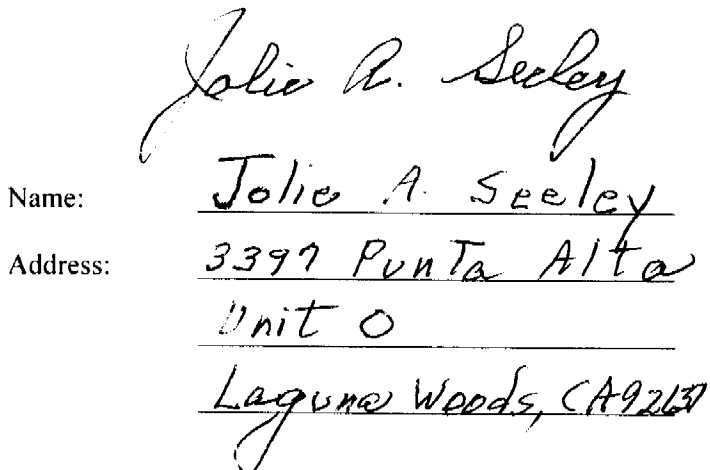 Jolie A. Seeley
Name: Jolie A. Seeley
Address: 3397 Punta Alta
Unit O
Laguna Woods, CA 92637